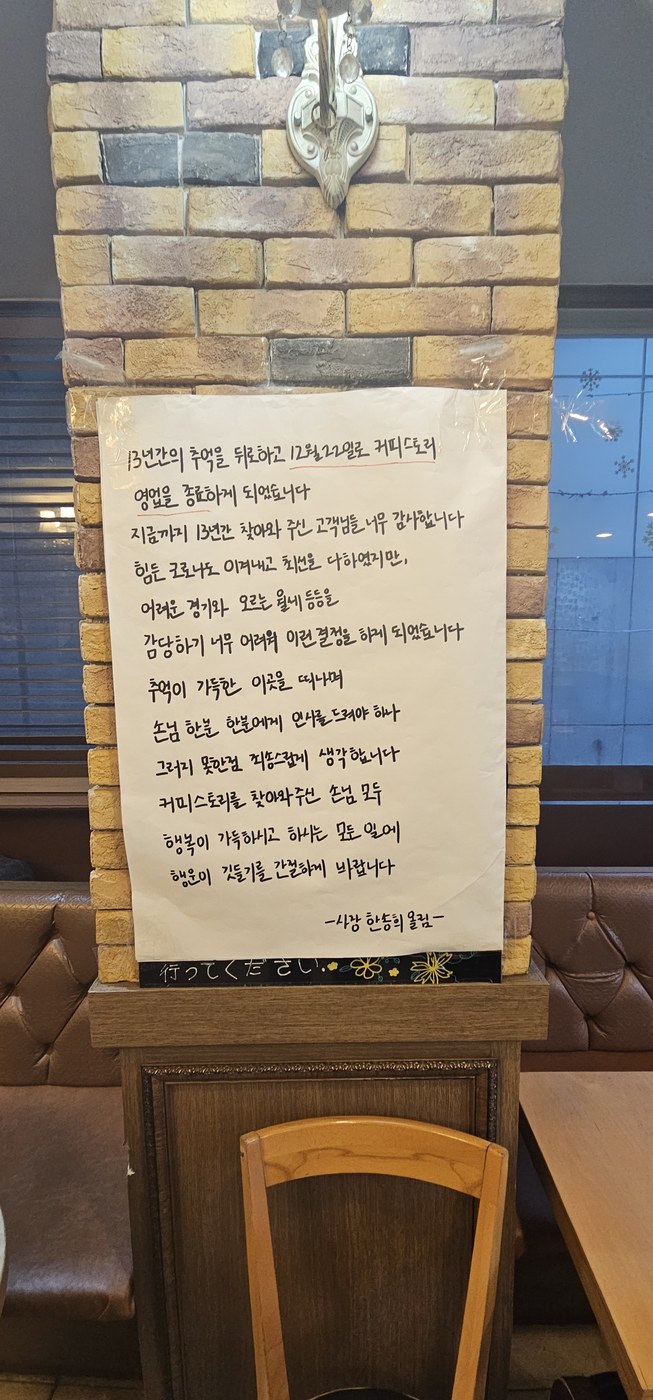 13년간의 추억을 뒤로하고 12월22일로 커피스토리
영업을 종료하게 되었습니다
지금까지 13년간 찾아와 주신 고객님들 너무 감사합니다
힘든 코로나도 이겨내고 최선을 다하였지만,
어려운 경기와 오르는 월세 등등을
감당하기 너무 어려워 이런 결정을 하게 되었습니다
추억이 가득한 이곳을 떠나며
손님 한분 한분에게 인사를 드려야 하나
그러지 못한점 죄송스럽게 생각합니다
커피스토리를 찾아와주신 손님 모두
행복이 가득하시고 하시는 모든 일에
행운이 깃들기를 간절하게 바랍니다
-사장 한송희 올림-
行ってください.